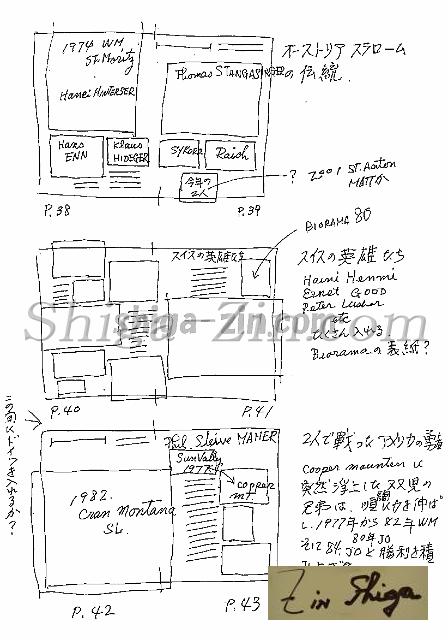 1974 WM
St. Moritz
Hansi HINTERSEER
Thomas STANGASSINGER
オーストリア スラローム
の伝統
Hans
ENN
Klaus
HIDEGGER
SYKORA
Raich
今年の
2人
?
2001 St. Anton
MATTか
P.38
P.39
BIORAMA 80
スイスの英雄たち
スイスの英雄たち
Heini Hemmi
Ernst GOOD
Peter Luscher
etc
たくさん入れる
Bioramaの表紙?
Shishga-Zin.com
P.40
P.41
この前にドイツを入れるか?
Phil. Steive MAHER
Sun Valley
1977
copper
mt
1982.
Cran Montana
SL.
2人で戦ったアメリカの
Cooper mounten に
突然浮上した双児の
兄弟は
し、1977年から82年WM
80年JO
そして84.JOと勝利を積
P.42
P.43
Z in Shiga